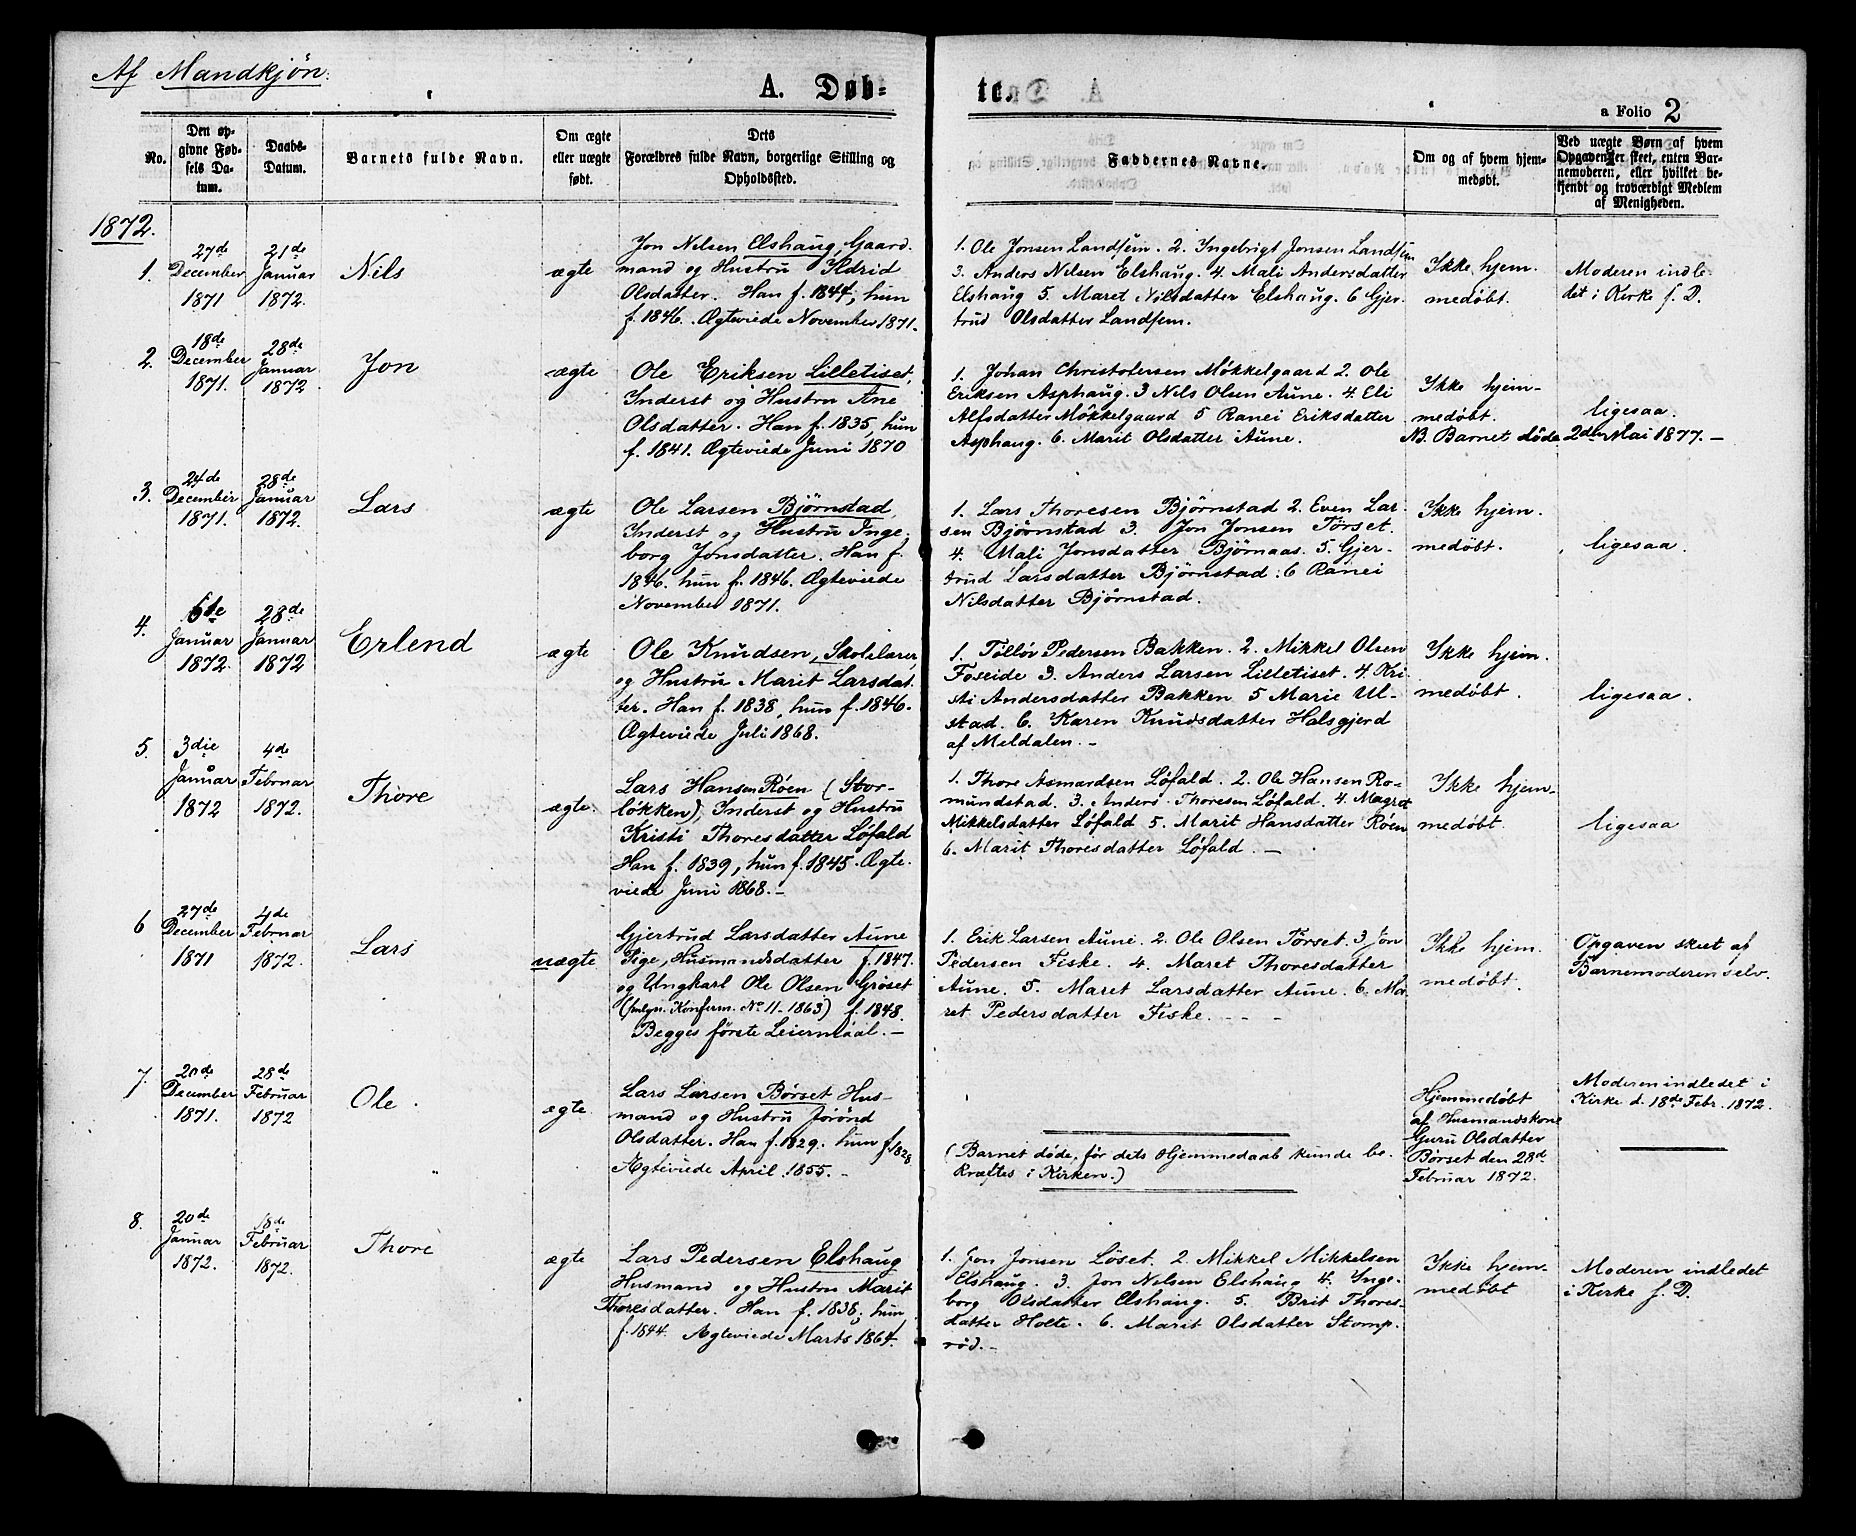 Af Mandkjøn:
A. Døb-
te.
a Folio 2
No.
Den op-
givne Fød-
sels Da-
tum.
Daabs-
Datum.
Barnets fulde Navn.
Om ægte
eller uægte
født.
Dets
Forældres fulde Navn, borgerlige Stilling og
Opholdssted.
Faddernes Navne.
Om og af hvem hjem-
medøbt.
Ved uægte Børn af hvem
Opgaven er skeet, enten Bar-
nemoderen, eller hvilket be-
kjendt og troværdigt Medlem
af Menigheden.
1872.
1.
27de
December
1871
21de
Januar
1872.
Nils
ægte
Jon Nilsen Elshaug, Gaard-
mand og Hustru Ildrid
Olsdatter. Han f. 1844, hun
f. 1846. Ægteviede November 1871.
1. Ole Jonsen Landsem. 2. Ingebrigt Jonsen Landsem
3. Anders Nilsen Elshaug. 4. Mali Andersdatter
Elshaug 5. Maret Nilsdatter Elshaug. 6 Gjer-
trud Olsdatter Landsem.
Ikke hjem.
medøbt.
Moderen indle-
det i Kirke s. D.
2.
18de
December
1871.
28de
Januar
1872
Jon
ægte
Ole Eriksen Lilletiset,
Inderst og Hustru Ane
Olsdatter. Han f. 1835, hun
f. 1841. Ægteviede Juni 1870
1. Johan Christofersen Møkkelgaard 2. Ole
Eriksen Asphaug. 3 Nils Olsen Aune. 4. Eli
Alfsdatter Møkkelgaard 5 Ranei Eriksdatter
Asphaug. 6. Marit Olsdatter Aune.
Ikke hjem-
medøbt.
NB. Barnet døde 2den Mai 1877. —
ligesaa.
3.
24de
December
1871.
28de
Januar
1872.
Lars
ægte
Ole Larsen Bjørnstad,
Inderst og Hustru Inge-
borg Jonsdatter. Han f.
1846. hun f. 1846. Ægteviede
November 1871.
1. Lars Thoresen Bjørnstad 2. Even Lar-
sen Bjørnstad 3. Jon Jonsen Tørset.
4. Mali Jonsdatter Bjørnaas. 5. Gjer-
trud Larsdatter Bjørnstad. 6 Ranei
Nilsdatter Bjørnstad.
Ikke hjem.
medøbt.
ligesaa.
4.
6te
Januar
1872.
28de
Januar
1872
Erlend
ægte
Ole Knudsen, Skolelærer,
og Hustru Marit Larsdat-
ter. Han f. 1838, hun f. 1846.
Ægteviede Juli 1868.
1. Tølløv Pedersen Bakken. 2. Mikkel Olsen
Foseide 3. Anders Larsen Lilletiset. 4. Kri
sti Andersdatter Bakken 5 Marie Ul-
stad. 6. Karen Knudsdatter Halsgjerd
af Meldalen. —
Ikke hjem.
medøbt.
ligesaa.
5.
3die
Januar
1872
4de
Februar
1872.
Thore
ægte.
Lars Hansen Røen (Stor-
løkken), Inderst og Hustru
Kristi Thoresdatter Løfald
Han f. 1839, hun f. 1845. Ægte-
viede Juni 1868. —
1. Thore Asmardsen Løfald. 2. Ole Hansen Ro-
mundstad. 3. Anders Thoresen Løfald. 4. Magret
Mikkelsdatter Løfald 5. Marit Hansdatter Røen
6. Marit Thoresdatter Løfald. —
Ikke hjem-
medøbt.
ligesaa
6
27de
December
1871
4de
Februar
1872.
Lars
uægte
Gjertrud Larsdatter Aune
Pige, Husmandsdatter f. 1847.
og Ungkarl Ole Olsen Grøset
Konferm. No 11 - 1863) f. 1848.
Begges første Leiermaal. —
1. Erik Larsen Aune. 2. Ole Olsen Tørset. 3 Jon
Pedersen Fiske. 4. Maret Thoresdatter
Aune. 5. Maret Larsdatter Aune. 6. Ma-
ret Pedersdatter Fiske. - - -
Ikke hjem.
medøbt.
Opgaven skeet af
Barnemoderen selv.
7.
20de
December
1871.
28de
Februar
1872
Ole.
ægte
Lars Larsen Børset Hus-
mand og Hustru Jørønd
Olsdatter. Han f. 1829. hun f 1828
Ægteviede April 1855. —
(Barnet døde, før dets Hjemmedaab kunde be-
kræftes i Kirken.)
Hjemmedøbt
af Husmandskone
Guru Olsdatter
Børset den 28de
Februar 1872.
Moderen indledet i
Kirke d. 18de Febr. 1872.
8.
20de
Januar
1872.
18de
Februar
1872.
Thore
ægte
Lars Pedersen Elshaug
Husmand og Hustru Marit
Thoresdatter. Han f. 1838, hun
f. 1844. Ægteviede Marts 1864.
1. Jon Jonsen Løset. 2. Mikkel Mikkelsen
Elshaug. 3. Jon Nilsen Elshaug 4. Inge-
borg Olsdatter Elshaug. 5. Brit Thores-
datter Holte. 6. Marit Olsdatter Stomp-
rød. —
Ikke hjem-
medøbt
Moderen indledet
i Kirke s. D.